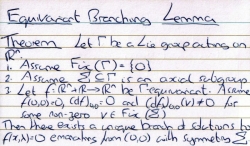 Equivariant Branching Lemma
Theorem Let Γ be a Lie group acting on
ℝⁿ
1. Assume Fix(Γ) = {0}
2. Assume Σ ⊆ Γ is an axial subgroup.
3. Let f: ℝⁿ × ℝ → ℝⁿ be Γ equivariant. Assume
f(0,0)=0, (df)₀,₀=0 and (df_λ)₀,₀(v) ≠ 0 for
some non-zero v ∈ Fix(Σ)
Then there exists a unique branch of solutions to
f(x,λ)=0 emanating from (0,0) with symmetry Σ